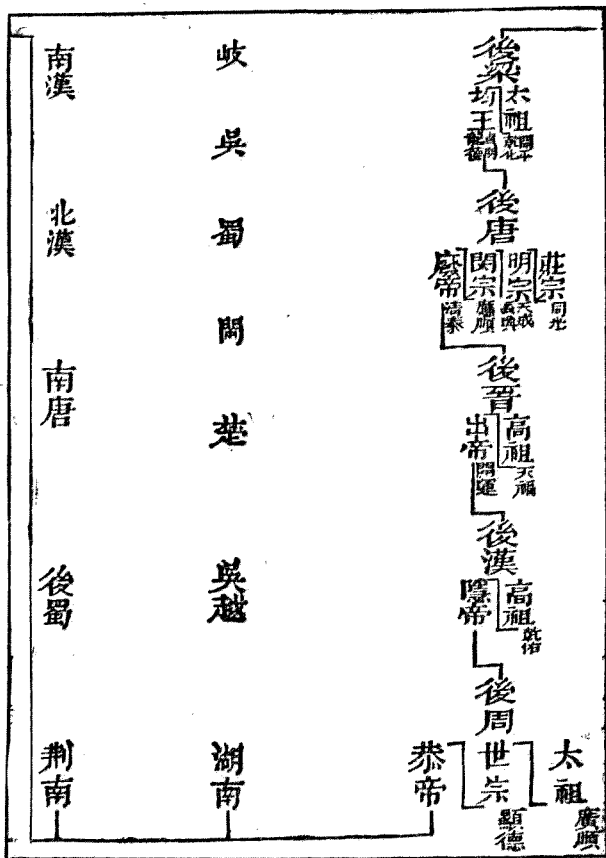 後梁
太祖 開平 乾化
均王 貞明 龍德
後唐
莊宗 同光
明宗 天成 長興
閔宗 應順
廢帝 清泰
後晉
高祖 天福
出帝 開運
後漢
高祖 乾佑
隱帝
後周
太祖 廣順
世宗 顯德
恭帝
岐
吳
蜀
閩
楚
吳越
湖南
南漢
北漢
南唐
後蜀
荆南